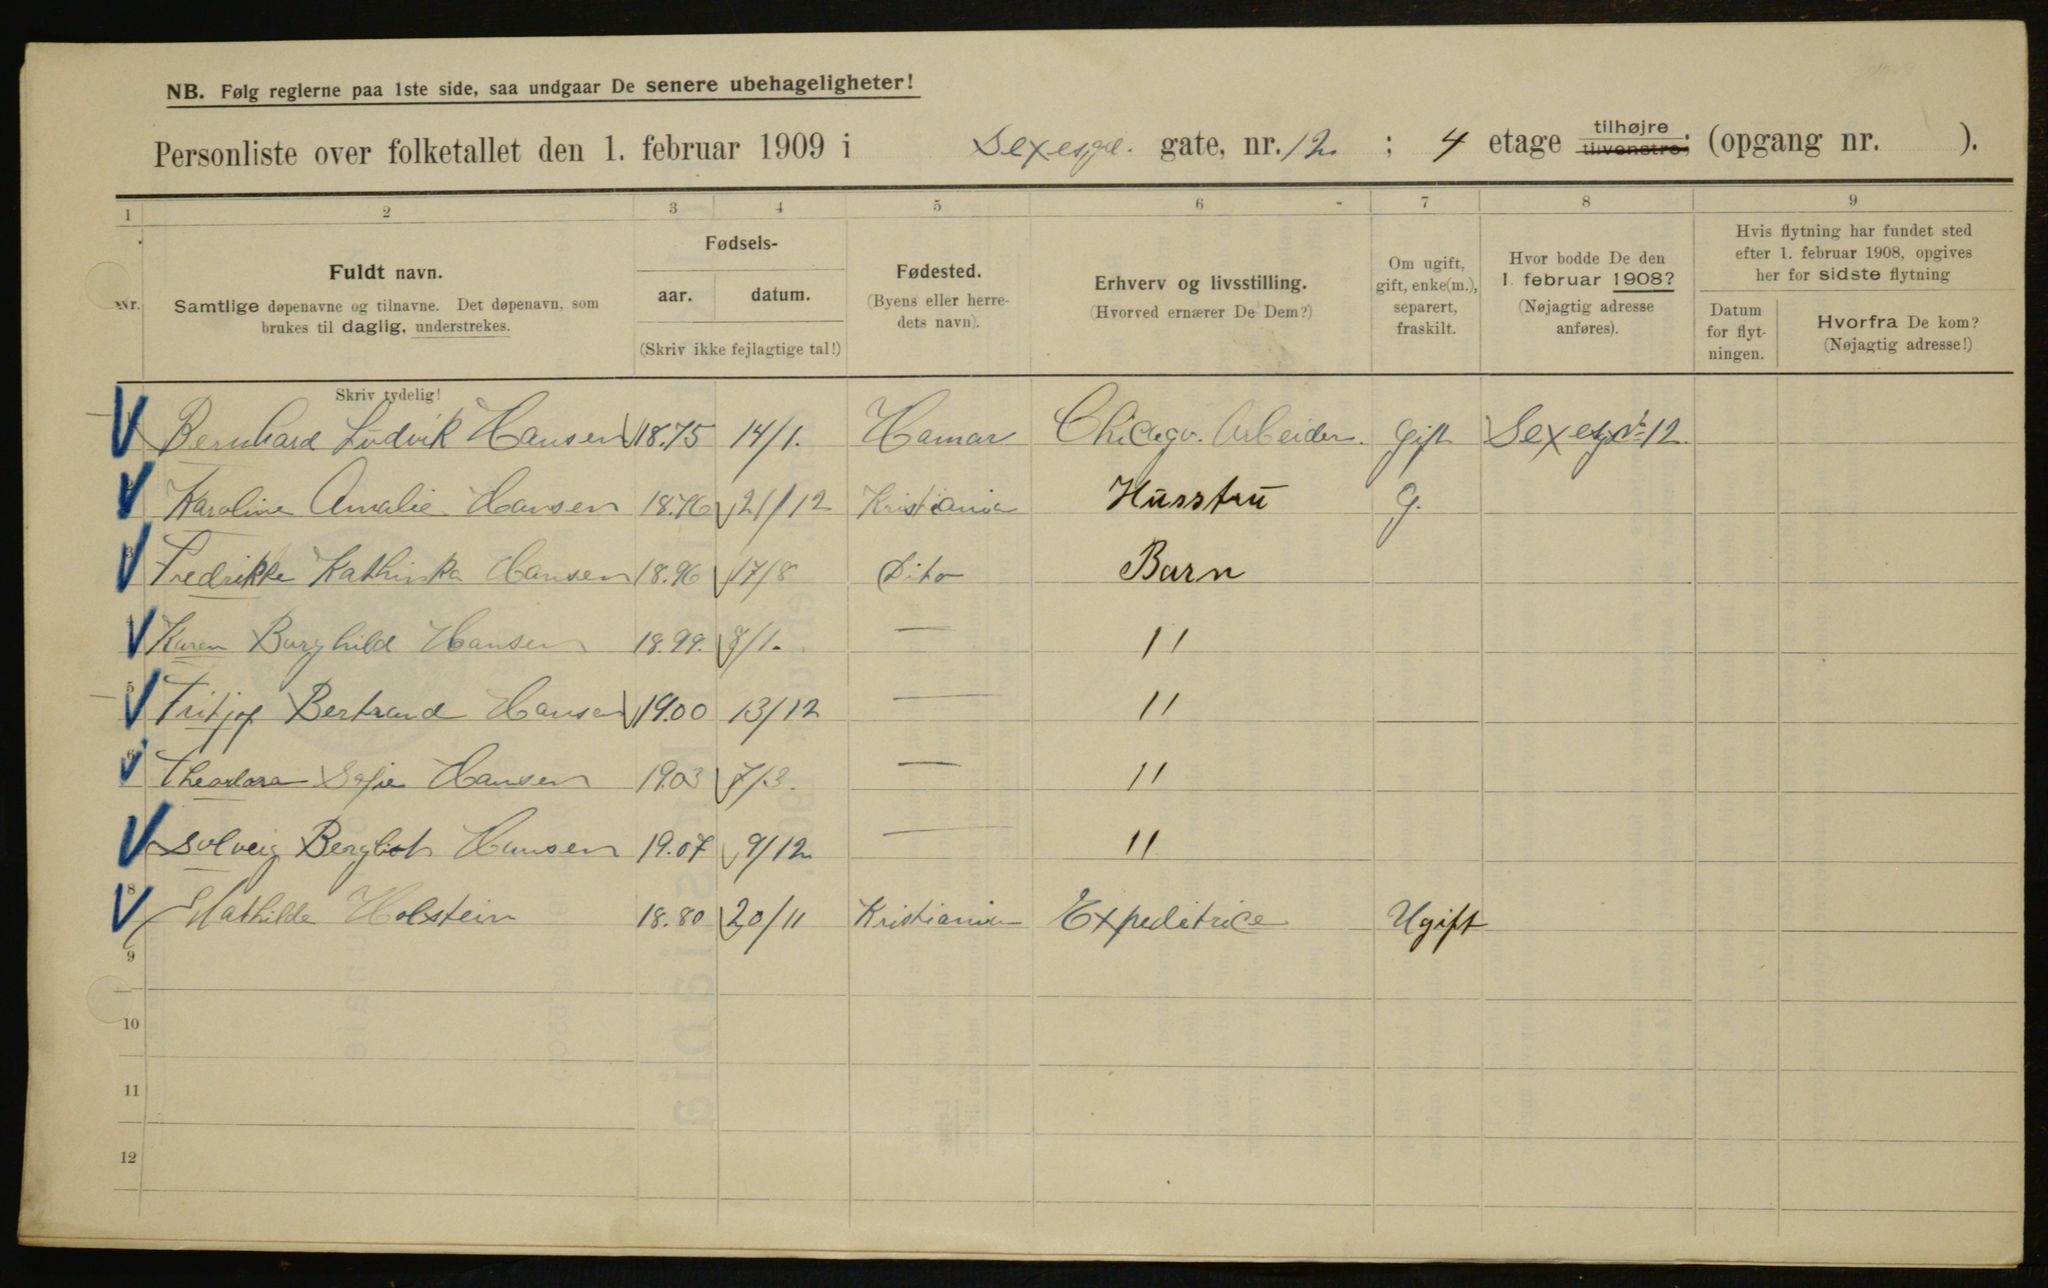 NB. Følg reglerne paa 1ste side, saa undgaar De senere ubehageligheter!
Personliste over folketallet den 1. februar 1909 i Sexesgd. gate, nr. 12 ; 4 etage tilhøjre tilvenstre; (opgang nr. ).
1 2 3 4 5 6 7 8 9
Nr.
Fuldt navn.
Samtlige døpenavne og tilnavne. Det døpenavn, som
brukes til daglig, understrekes.
Fødsels-
aar. datum.
(Skriv ikke fejlagtige tal!)
Fødested.
(Byens eller herre-
dets navn).
Erhverv og livsstilling.
(Hvorved ernærer De Dem?)
Om ugift,
gift, enke(m.),
separert,
fraskilt.
Hvor bodde De den
1. februar 1908?
(Nøjagtig adresse
anføres).
Hvis flytning har fundet sted
efter 1. februar 1908, opgives
her for sidste flytning
Datum
for flyt-
ningen.
Hvorfra De kom?
(Nøjagtig adresse!)
Skriv tydelig!
1 Bernhard Ludvik Hansen 18.75 14/1. Hamar Chicago. Arbeider. gift Sexesg No 12
2 Karoline Amalie Hansen 18.76 21/12 Kristiania Husstru G.
3 Fredrikke Kathinka Hansen 18.96 17/8 Dito Barn
4 Karen Borghild Hansen 18.99. 8/1. — 11
5 Fritjof Bertrand Hansen 19.00 13/12 — 11
6 Theodora Sofie Hansen 19.03 7/3. — 11
Solveig Bergliot Hansen 19.07 9/12 — 11
8 Mathilde Holstein 18.80 20/11 Kristiania Expeditrice Ugift
9
10
11
12